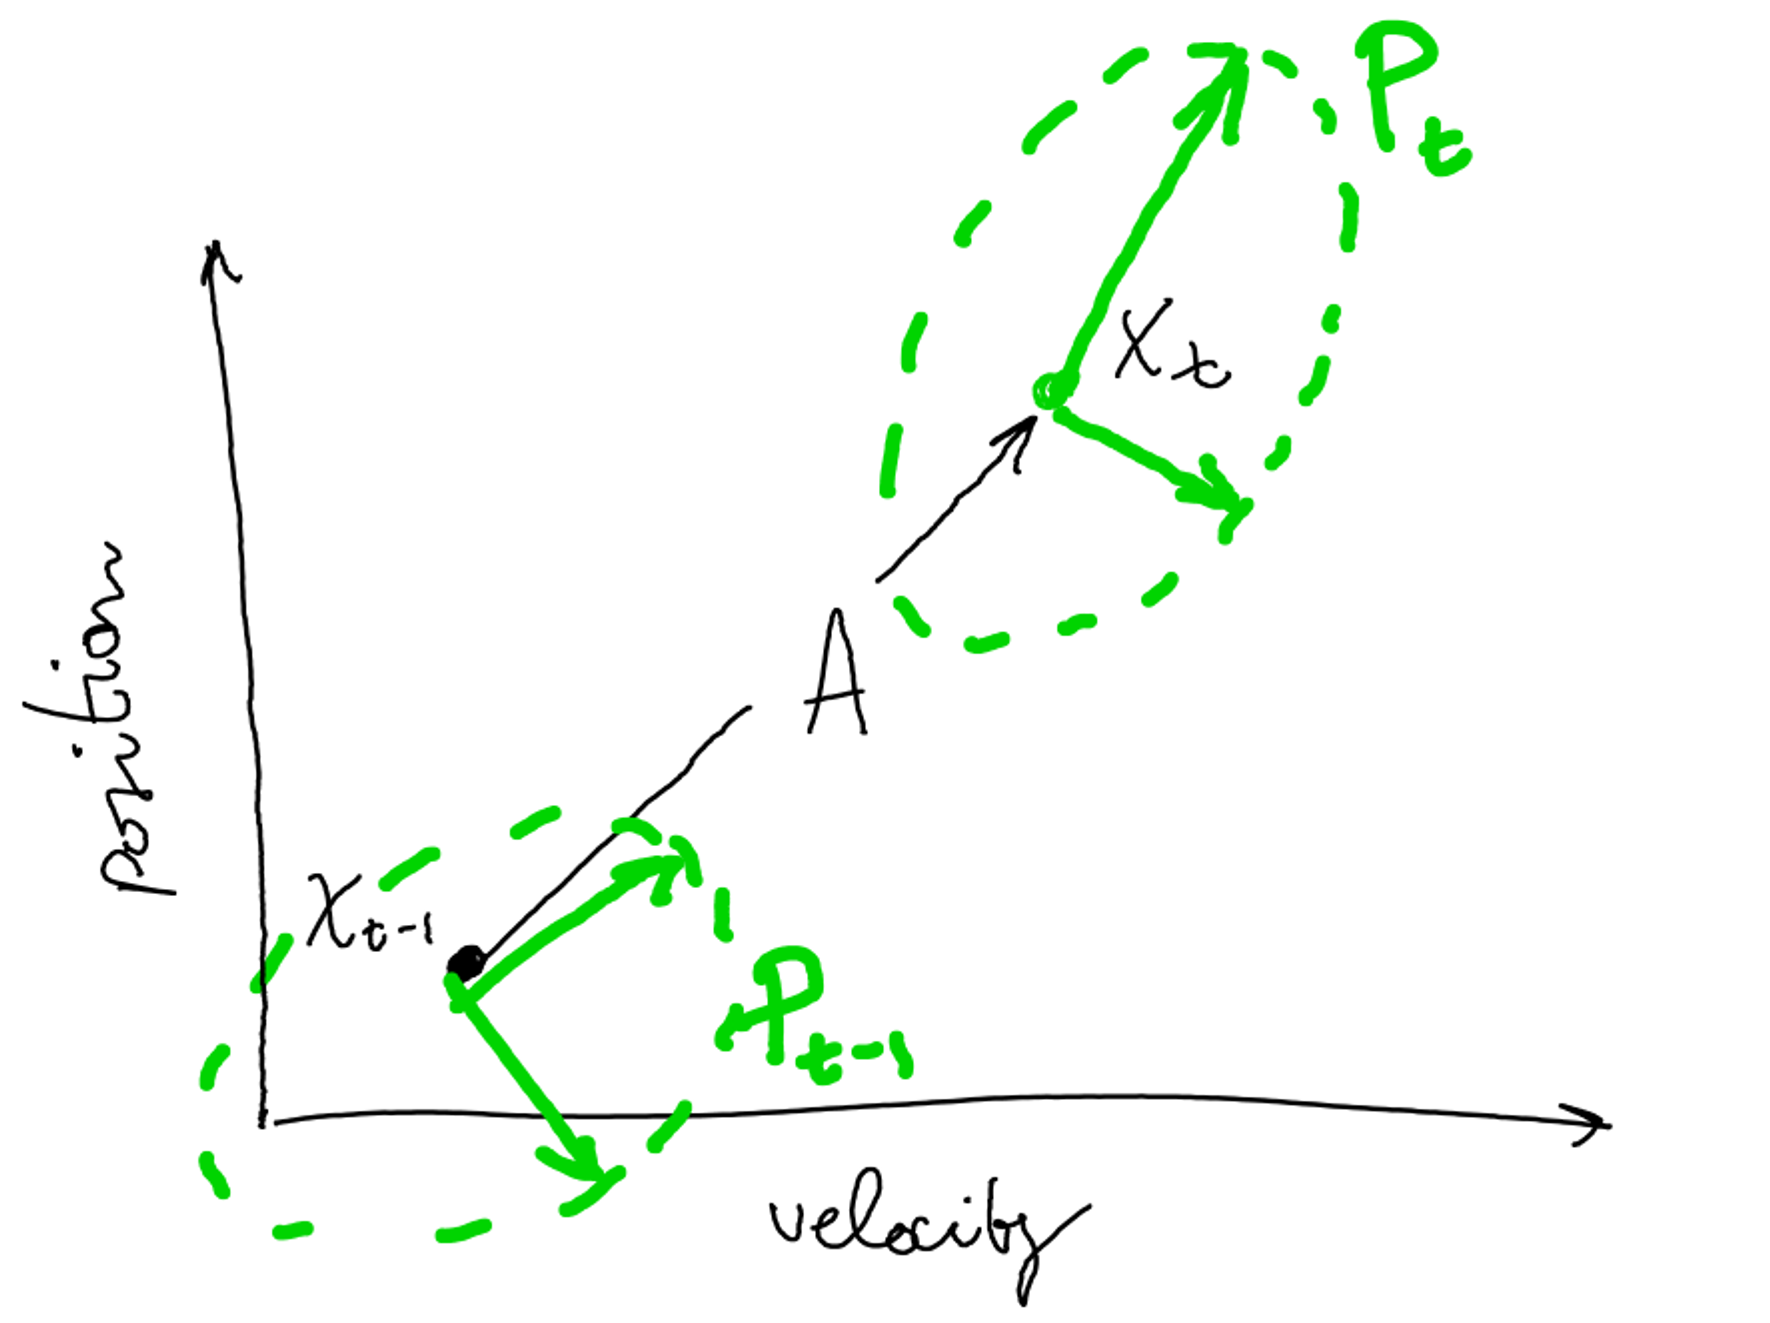 P_t
X_t
position
A
X_{t-1}
P_{t-1}
velocity